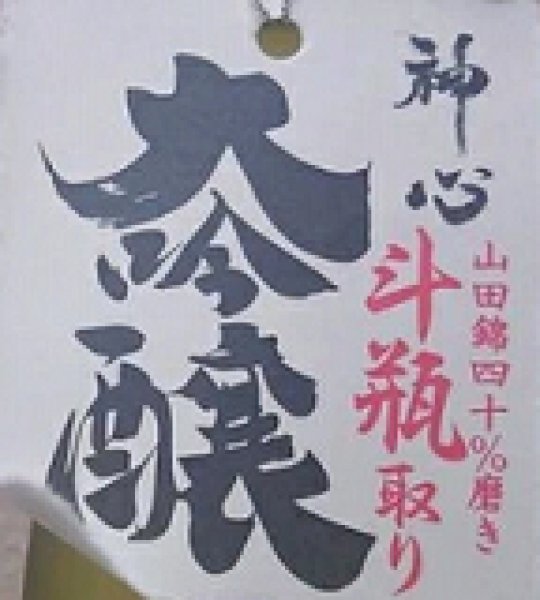 神心
山田錦四十%磨き
斗瓶取り
大吟醸